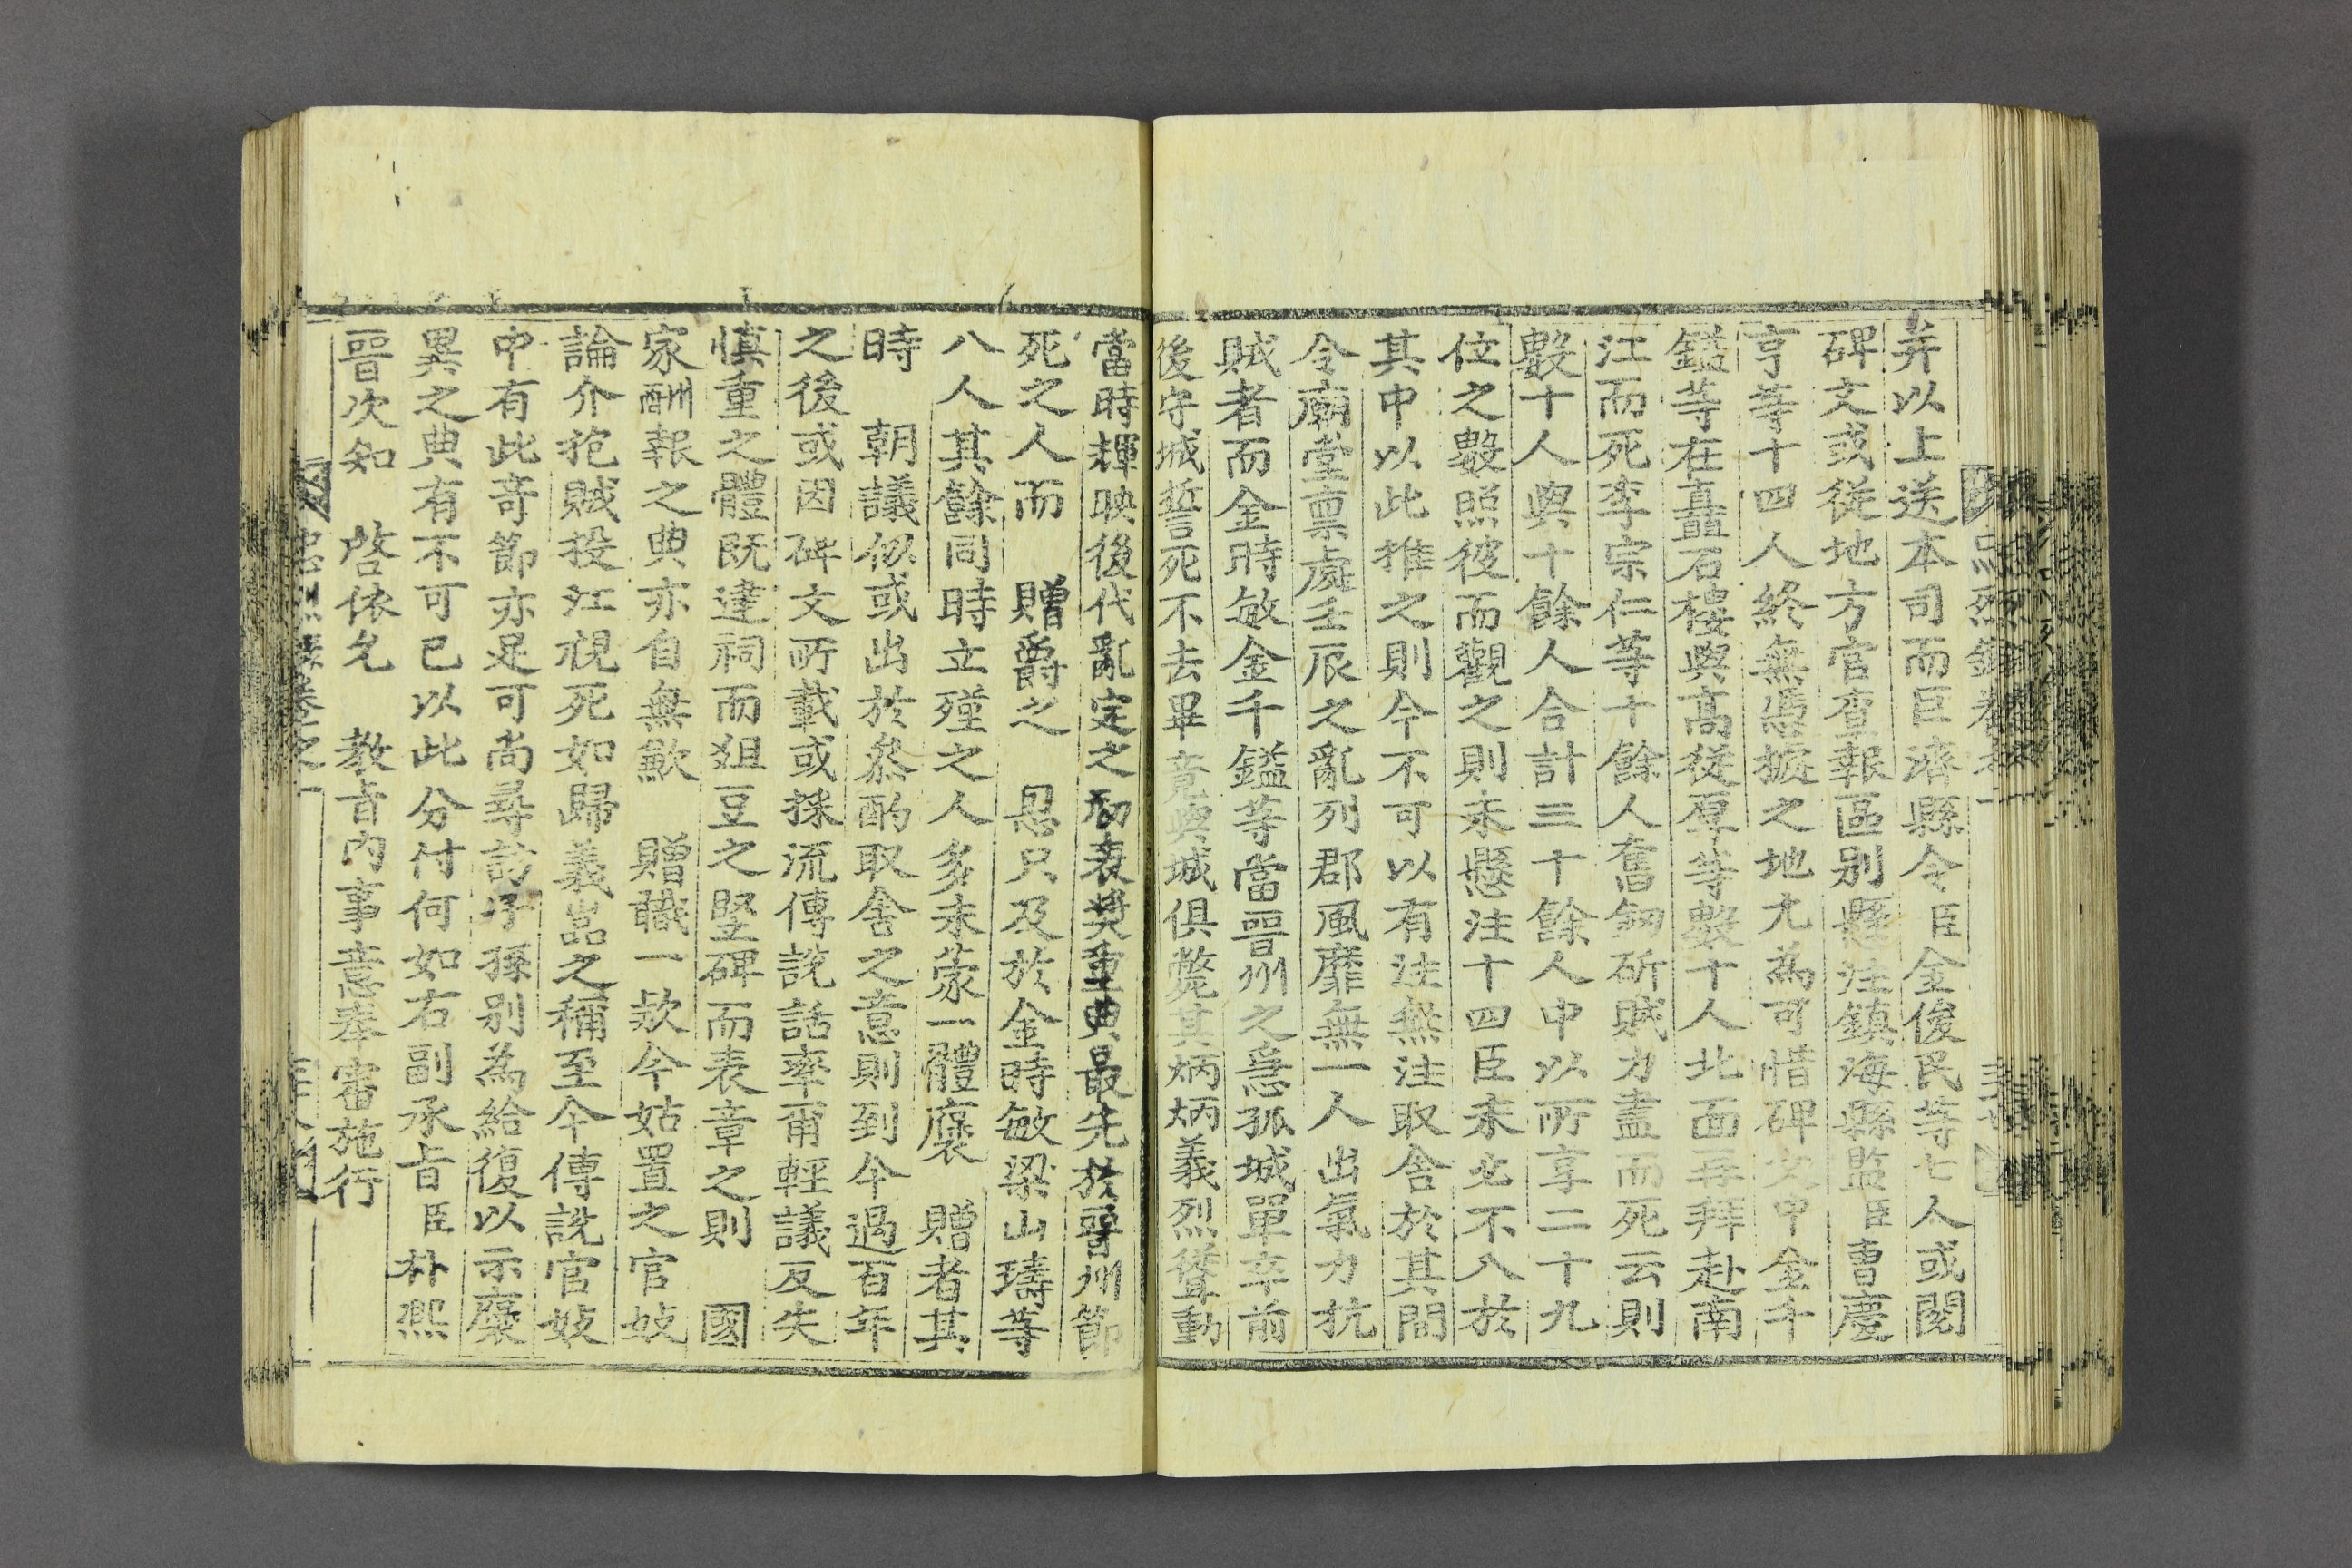 并以上送本司而巨濟縣令臣金俊民等七人或閱
碑文或從地方官查報區別懸注鎮海縣監臣曺慶
亨等十四人終無憑據之地尤為可惜碑文中金千
鎰等在矗石樓與高從厚等數十人北面再拜赴南
江而死李宗仁等十餘人奮劒斫賊力盡而死云則
數十人與十餘人合計三十餘人中以所享二十九
位之數照彼而觀之則未懸注十四臣未必不入於
其中以此推之則今不可以有注無注取舍於其間
令廟堂稟處壬辰之亂列郡風靡無一人出氣力抗
賊者而金時敏金千鎰等當晋州之急孤城單卒前
後守城誓死不去畢竟與城俱斃其炳炳義烈聳動
當時輝映後代亂定之初表獎重典最先於晋州節
死之人而 贈爵之 恩只及於金時敏梁山璹等
八人其餘同時立殣之人多未蒙一體褒 贈者其
時 朝議似或出於叅酌取舍之意則到今過百年
之後或因碑文所載或採流傳說話率爾輕議反失
愼重之體既建祠而俎豆之竪碑而表章之則 國
家酬報之典亦自無歉 贈職一款今姑置之官妓
論介抱賊投江視死如歸義嵓之稱至今傳說官妓
中有此奇節亦足可尚尋訪子孫別為給復以示褒
異之典有不可已以此分付何如右副承旨臣朴熙
晋次知 啓依允 教旨內事意奉審施行